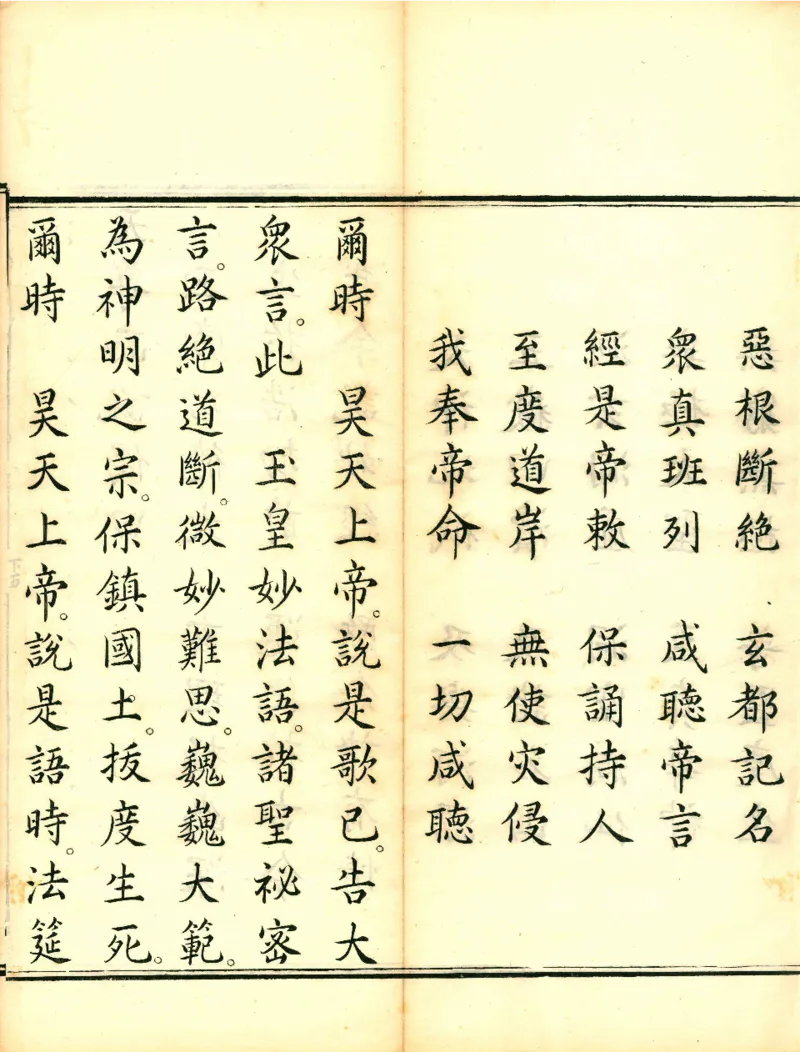 惡根斷絶　玄都記名
衆真班列　咸聽帝言
經是帝敕　保誦持人
至度道岸　無使灾侵
我奉帝命　一切咸聽
爾時　昊天上帝。說是歌已。告大
衆言。此　玉皇妙法語。諸聖祕密
言。路絶道斷。微妙難思。巍巍大範。
為神明之宗。保鎮國土。拔度生死。
爾時　昊天上帝。說是語時。法筵